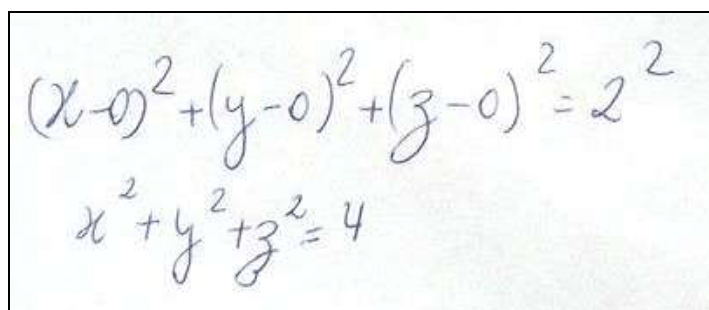 (x-0)²+(y-0)²+(z-0)²=2²
x²+y²+z²=4